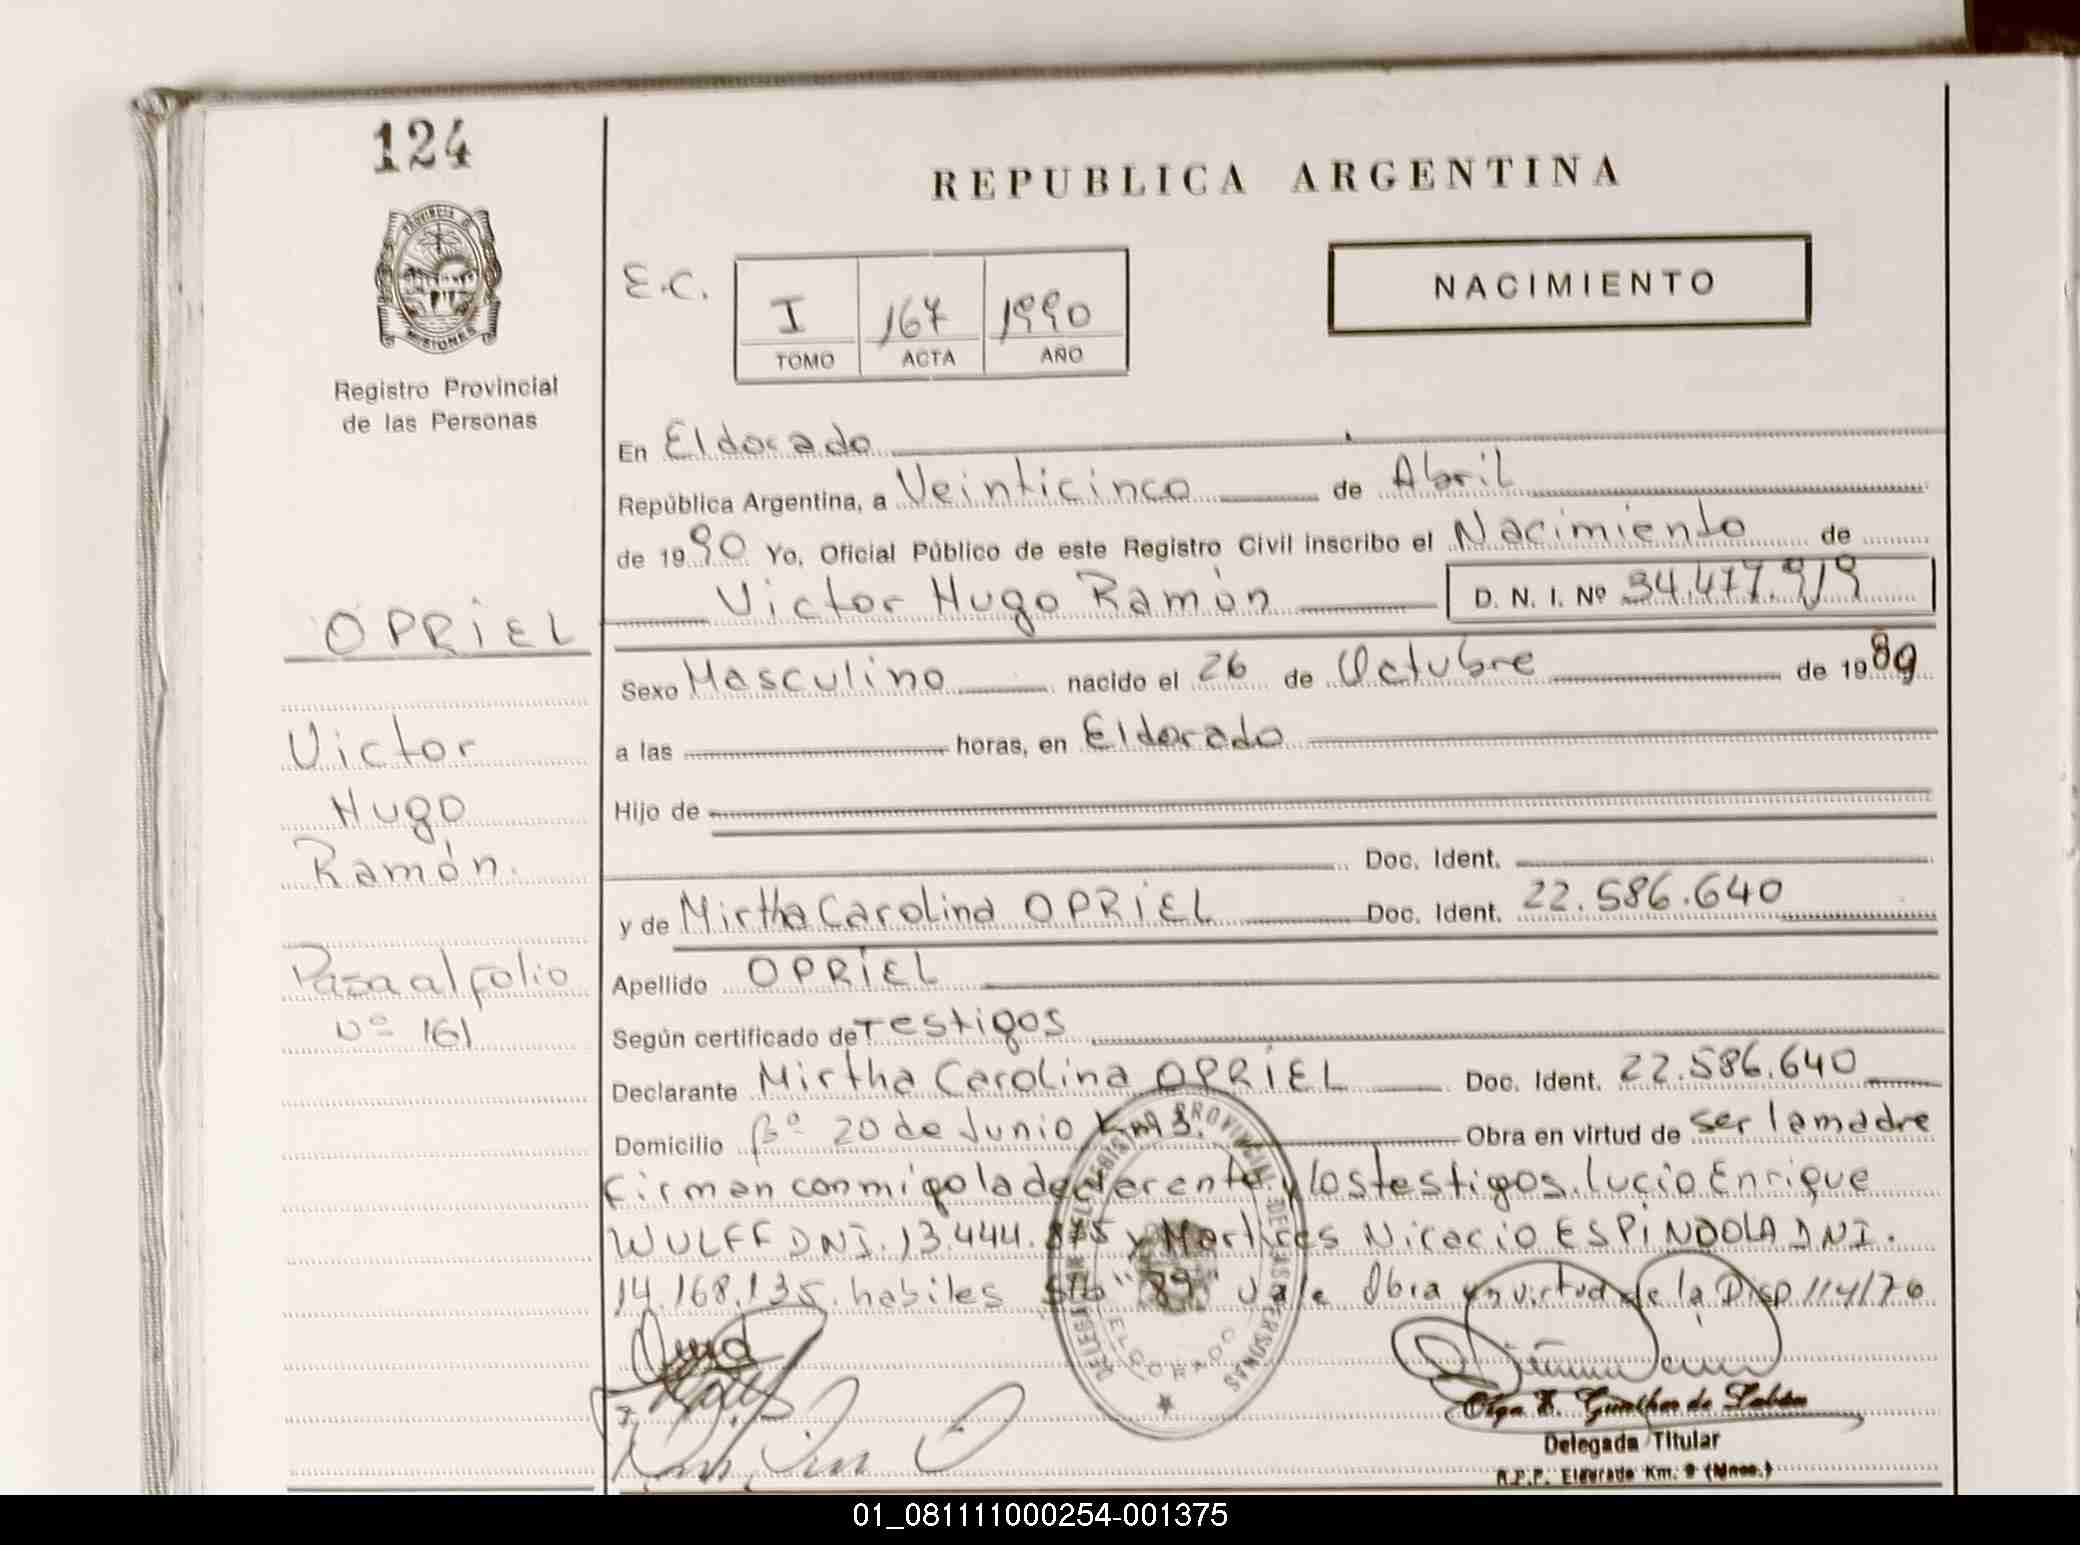 124
REPUBLICA ARGENTINA
PROVINCIA D
MISIONES
Registro Provincial
de las Personas
E.C.
I 167 1990
TOMO ACTA AÑO
NACIMIENTO
En Eldorado
República Argentina, a Veinticinco de Abril
de 1990 Yo, Oficial Público de este Registro Civil inscribo el Nacimiento de
Victor Hugo Ramón D. N. I. Nº 34.477.919
OPRIEL
Sexo Masculino nacido el 26 de Octubre de 1989
Victor
a las horas, en Eldorado
Hugo
Hijo de
Ramón.
Doc. Ident.
y de Mirtha Carolina OPRIEL Doc. Ident. 22.586.640
Pasa al folio
Nº 161
Apellido OPRIEL
Según certificado de Testigos
Declarante Mirtha Carolina OPRIEL Doc. Ident. 22.586.640
Domicilio Bº 20 de Junio Km 3. Obra en virtud de ser la madre
Firman conmigo la declarente y los testigos. Lucio Enrique
WULFF DNI. 13.444.875 y Nicacio ESPINDOLA DNI.
14.168.135. habiles S/b "89" Vale Obra en virtud de la Disp 114/76
REGISTRO PROVINCIAL DE LAS PERSONAS
ELDORADO
Olga
Delegada Titular
R.P.P. Eldorado Km. 9 (Mnes.)
01_081111000254-001375